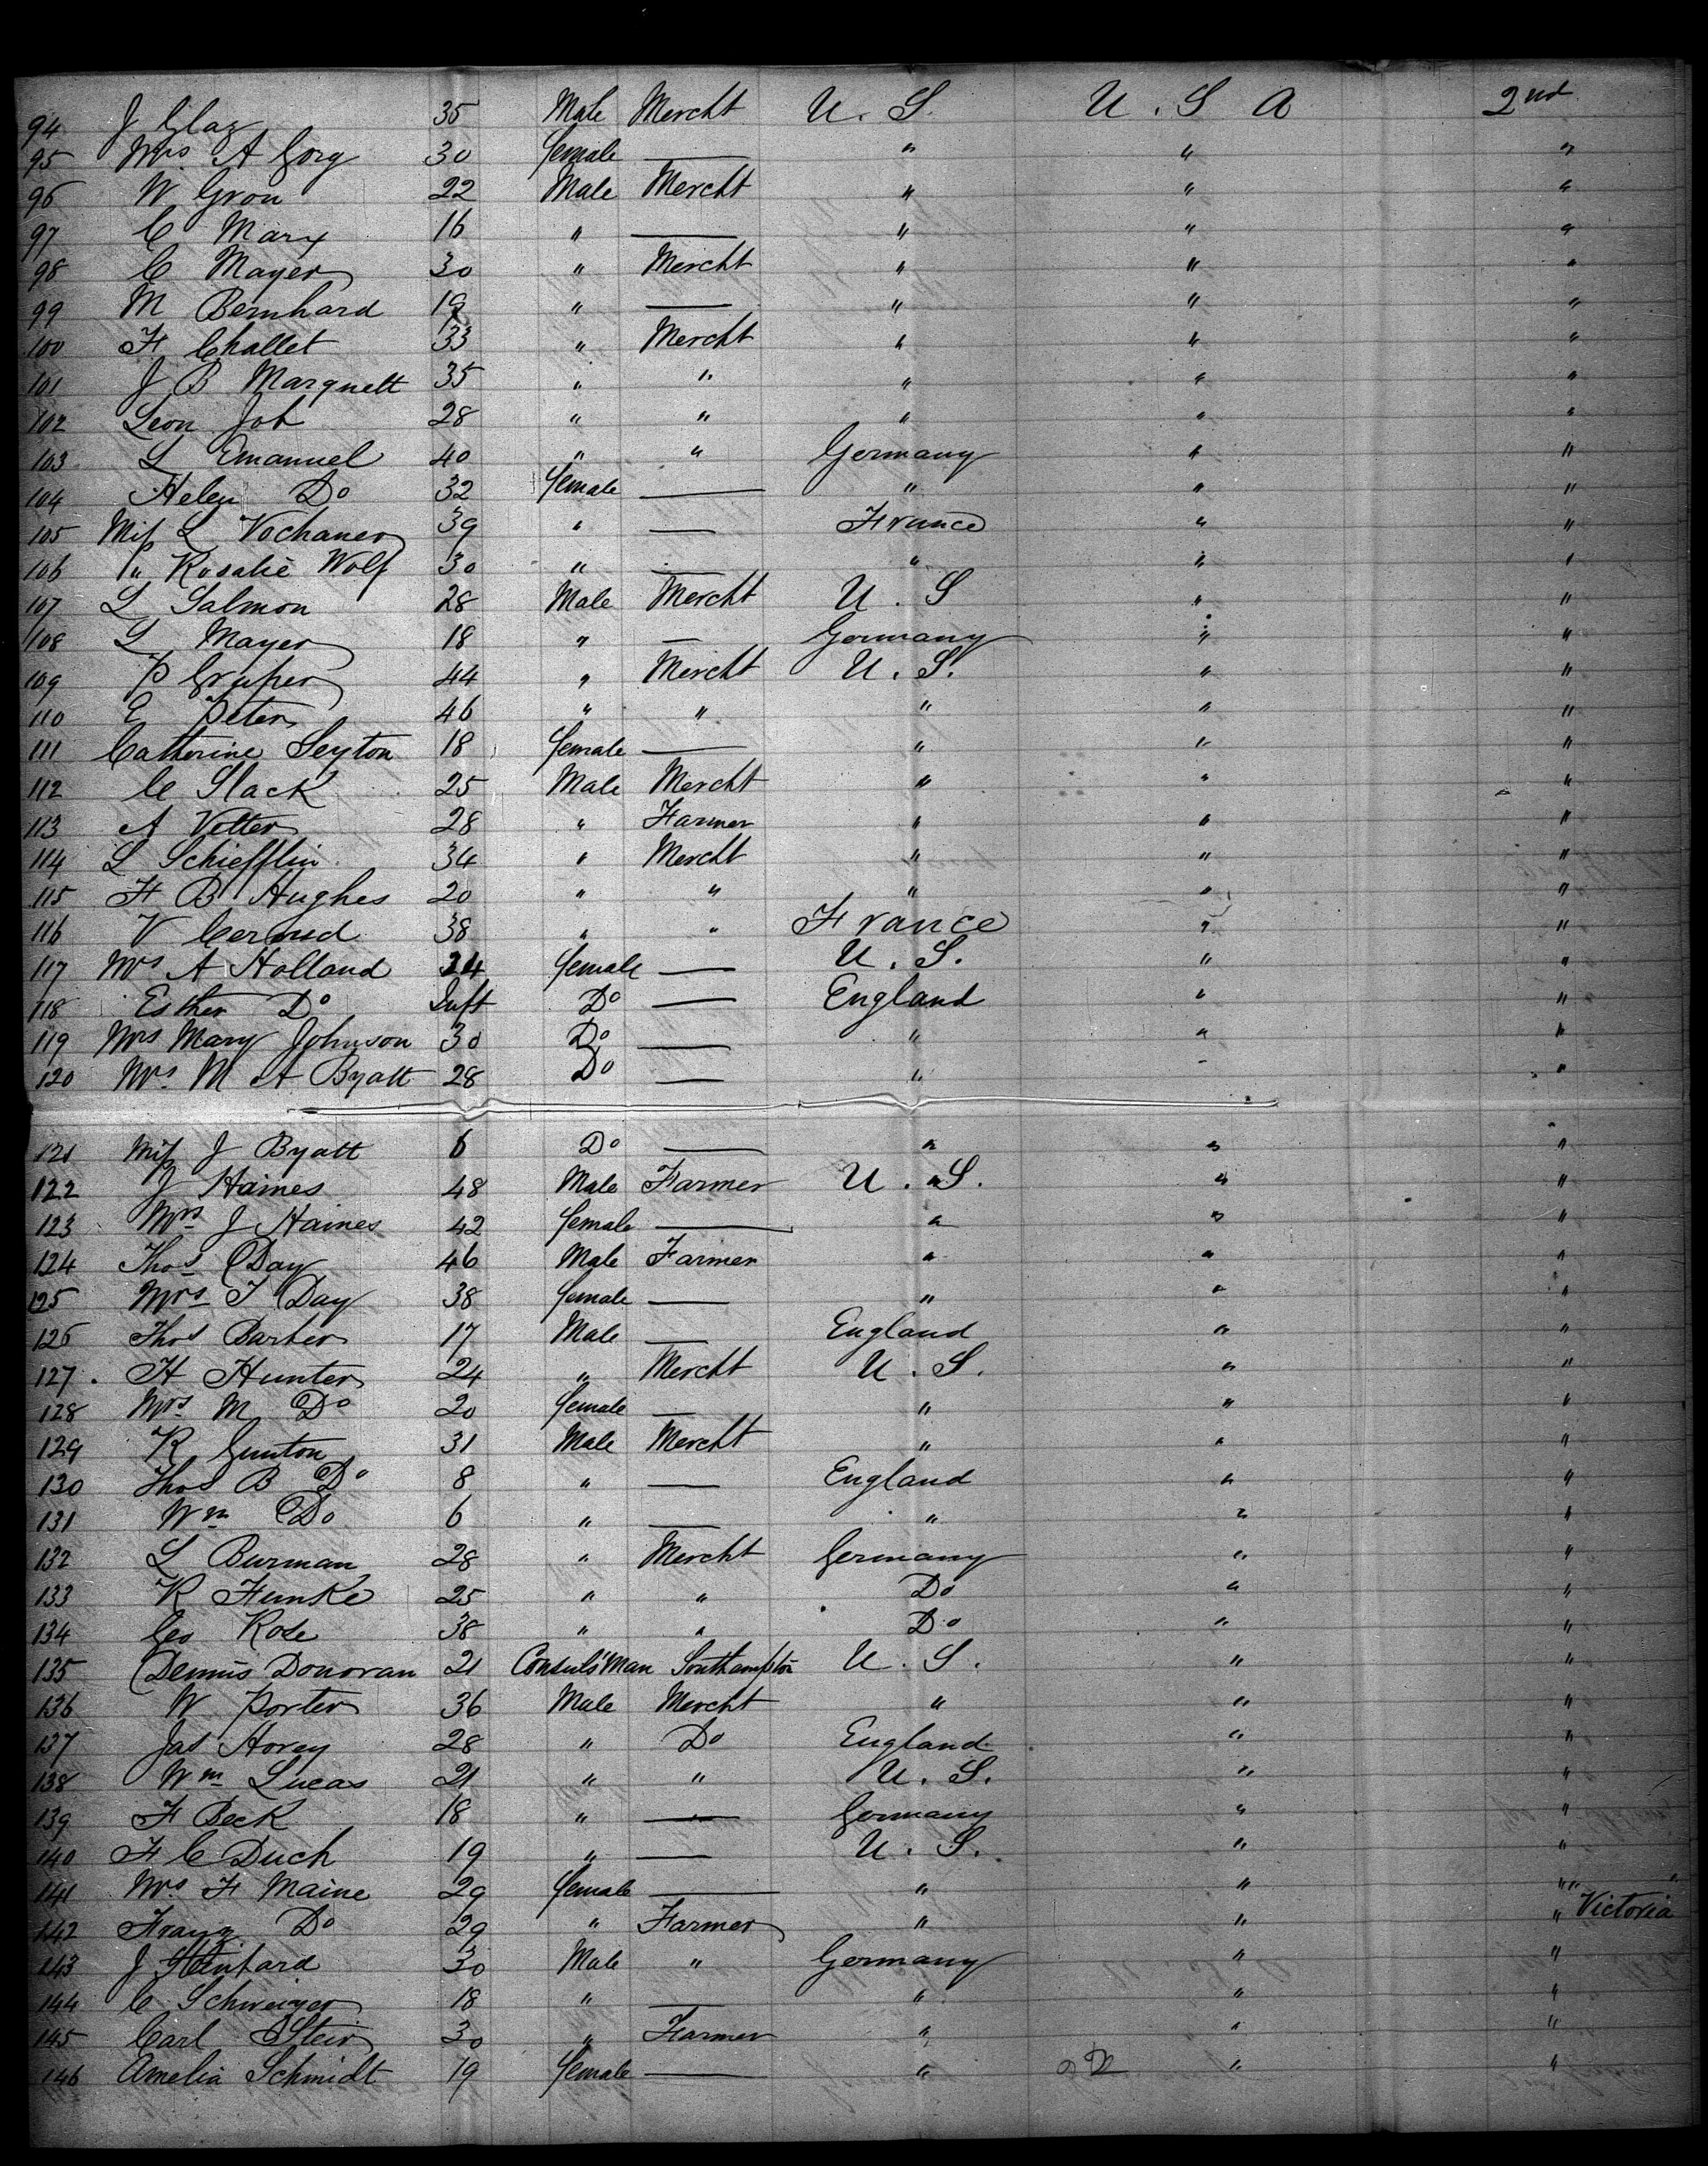 94 J Glaz 35 Male Mercht U. S. U. S A 2nd
95 Mrs A Gorg 30 female — " " "
96 W Gron 22 Male Mercht " " "
97 C Marx 16 " — " " "
98 C Mayer 30 " Mercht " " "
99 M Bernhard 19 " — " " "
100 F Challet 33 " Mercht " " "
101 J B Marquett 35 " " " " "
102 Leon Job 28 " " " " "
103 L Emanuel 40 " " Germany " "
104 Helen Do 32 female — " " "
105 Miss L Vochaner 39 " — France " "
106 " Rosalie Wolf 30 " — " " "
107 L Salmon 28 Male Mercht U. S " "
108 L Mayer 18 " — Germany " "
109 P 44 " Mercht U. S. " "
110 E Peter 46 " " " " "
111 Catherine Seyton 18 female — " " "
112 C Slack 25 Male Mercht " " "
113 A Vetter 28 " Farmer " " "
114 L Schiefflin 34 " Mercht " " "
115 F B Hughes 20 " " " " "
116 V 38 " " France " "
117 Mrs A Holland 34 female — U. S. " "
118 Esther Do Inft Do — England " "
119 Mrs Mary Johnson 30 Do — " " "
120 Mrs M A Byatt 28 Do — " " "
121 Miss J Byatt 6 Do — " " "
122 J Haines 48 Male Farmer U. S. " "
123 Mrs J Haines 42 female — " " "
124 Thos Day 46 Male Farmer " " "
125 Mrs T Day 38 female — " " "
126 Thos Barber 17 Male — England " "
127 H Hunter 24 " Mercht U. S. " "
128 Mrs M Do 20 female — " " "
129 R Gunton 31 Male Mercht " " "
130 Thos B Do 8 " — England " "
131 Wm Do 6 " — " " "
132 L Burman 28 " Mercht Germany " "
133 R Funke 25 " " Do " "
134 Geo Rose 38 " " Do " "
135 Dennis Donovan 21 Consuls Man Southampton U. S. " "
136 W Porter 36 Male Mercht " " "
137 Jas Hovey 28 " Do England " "
138 Wm Lucas 21 " " U. S. " "
139 F Beck 18 " — Germany " "
140 F C Duch 19 " — U. S. " "
141 Mrs F Maine 29 female — " " "
142 Franz Do 29 " Farmer " " " Victoria
143 J 30 Male " Germany " "
144 C Schweizer 18 " — " " "
145 Carl Stein 30 " Farmer " " "
146 Amelia Schmidt 19 female — " " "